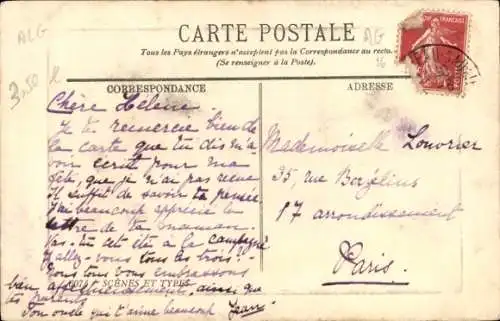 ALG
AG
3,50
CARTE POSTALE
Tous les Pays étrangers n'acceptent pas la Correspondance au recto
(Se renseigner à la Poste).
CORRESPONDANCE
ADRESSE
Chère Hélène
Je te remercie bien de
la carte que tu dis m'a
voir écrit pour ma
fête, que je n'ai pas reçue
Il suffit de savoir ta pensée
J'ai beaucoup apprécié la
lettre de ta maman
Vas-tu cet été à la campagne
Y allez-vous tous les trois?
Nous tous vous embrassons
bien affectueusement, ainsi que
tes parents
Ton oncle qui t'aime beaucoup Jean
SCÈNES ET TYPES
Mademoiselle Louvrier
35, rue Berzélius
17 arrondissement
Paris.